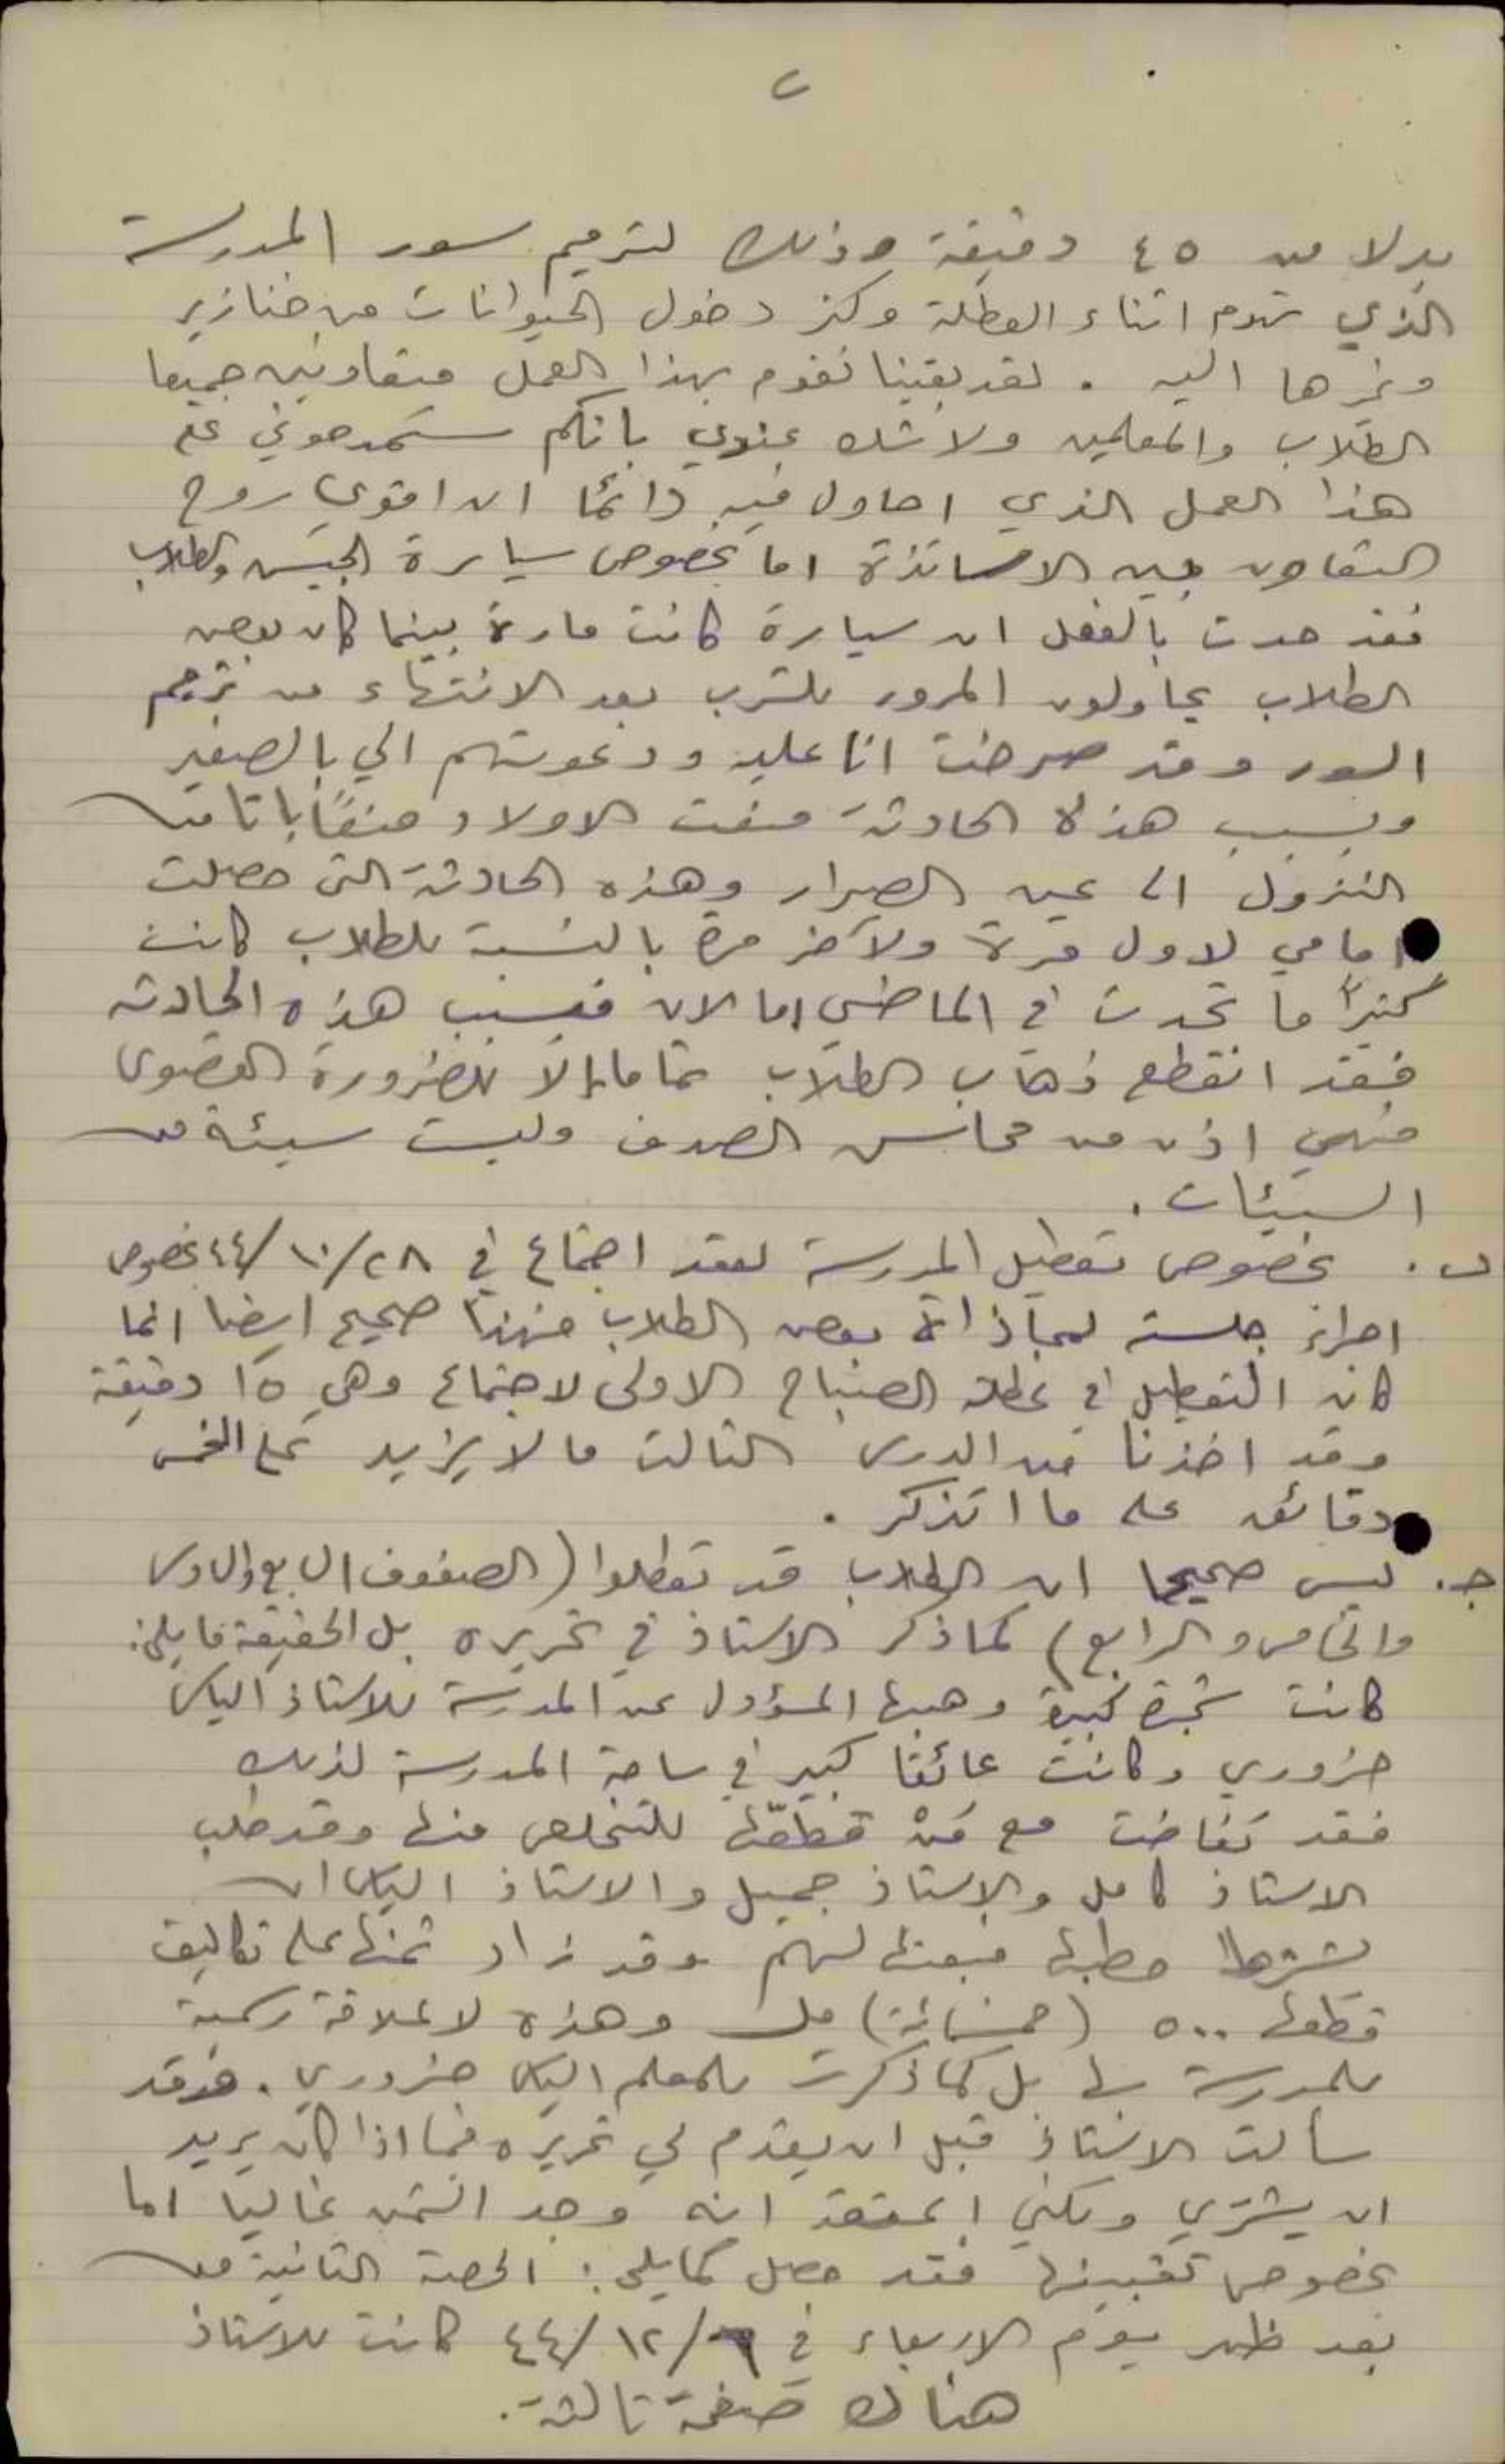 ٢
بدلا من ٤٥ دقيقة وذلك لترميم سور المدرسة
الذي تهدم اثناء العطلة وكثر دخول الحيوانات من خنازير
وغيرها اليه . لقد بقينا نقوم بهذا العمل متعاونين جميعا
الطلاب والمعلمين ولا شك عندي بانكم ستمدحوني على
هذا العمل الذي احاول فيه دائما ان اقوي روح
التعاون بين الاساتذة اما بخصوص سيارة الجيش والطلاب
فقد حدث بالفعل ان سيارة كانت مارة بينما كان بعض
الطلاب يحاولون المرور للشرب بعد الانتهاء من ترميم
السور وقد صرخت انا عليه ودعوتهم الي بالصفير
وبسبب هذه الحادثة منعت الاولاد منعًا باتا من
النزول الى عين الصرار وهذه الحادثة التى حصلت
امامي لاول مرة ولآخر مرة بالنسبة للطلاب كانت
كثيرًا ما تحدث في الماضي اما الان فبسبب هذه الحادثه
فقد انقطع ذهاب الطلاب تماما إلا للضرورة القصوى
فهي اذن من محاسن الصدف وليست سيئة من
السيئات .
ب . بخصوص تعطيل المدرسة لعقد اجتماع في ٢٨/١٠/٤٤ بخصوص
اجراء جلسة لمجازاة بعض الطلاب فهذا صحيح ايضا انما
كان التعطيل في عطلة الصباح الاولى لاجتماع وهي ١٥ دقيقة
وقد اخذنا من الدرس الثالث ما لا يزيد على الخمس
دقائق على ما اتذكر .
جـ . ليس صحيحا ان الطلاب قد تعطلوا (الصفوف السابع والسادس
والخامس والرابع) كما ذكر الاستاذ في تحريره بل الحقيقة ما يلي :
كانت شجرة كبيرة وهبها المسؤول عن المدرسة للاستاذ الياس
ضروري وكانت عائقا كبير في ساحة المدرسة لذلك
فقد تفاضت مع مَنْ قطعّها للتخلص منها وقد طلب
الاستاذ كامل والاستاذ جميل والاستاذ الياس ان
يشتروا حطبها فبعتها لهم وقد زاد ثمنها على تكاليف
قطعها ٥٠٠ (خمسمائة) مل وهذه لا علاقة رسمية
للمدرسة بها بل كما ذكرت للمعلم الياس ضروري . وقد
سألت الاستاذ قبل ان يقدم لي تحريره فيما اذا كان يريد
ان يشتري ولكني اعتقد انه وجد الثمن غاليا اما
بخصوص تغيبنها فقد حصل كما يلي : الحصة الثانية من
بعد ظهر يوم الاربعاء في ٦/١٢/٤٤ كانت للاستاذ
هناك صفحة ثالثة .